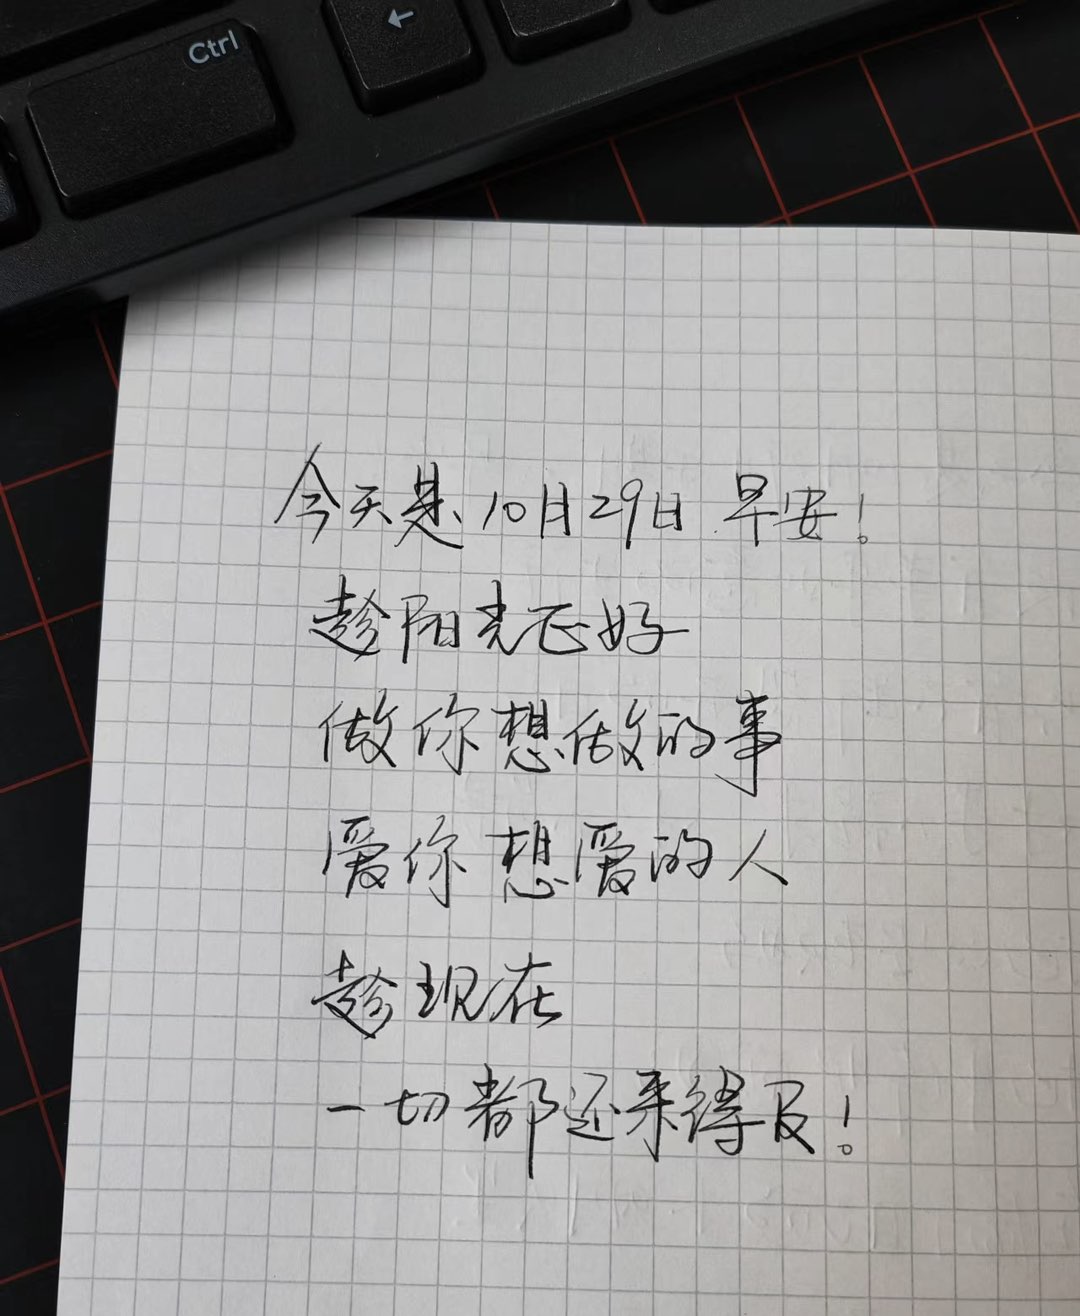 Ctrl
←
今天是10月29日 早安！
趁阳光正好
做你想做的事
爱你想爱的人
趁现在
一切都还来得及！